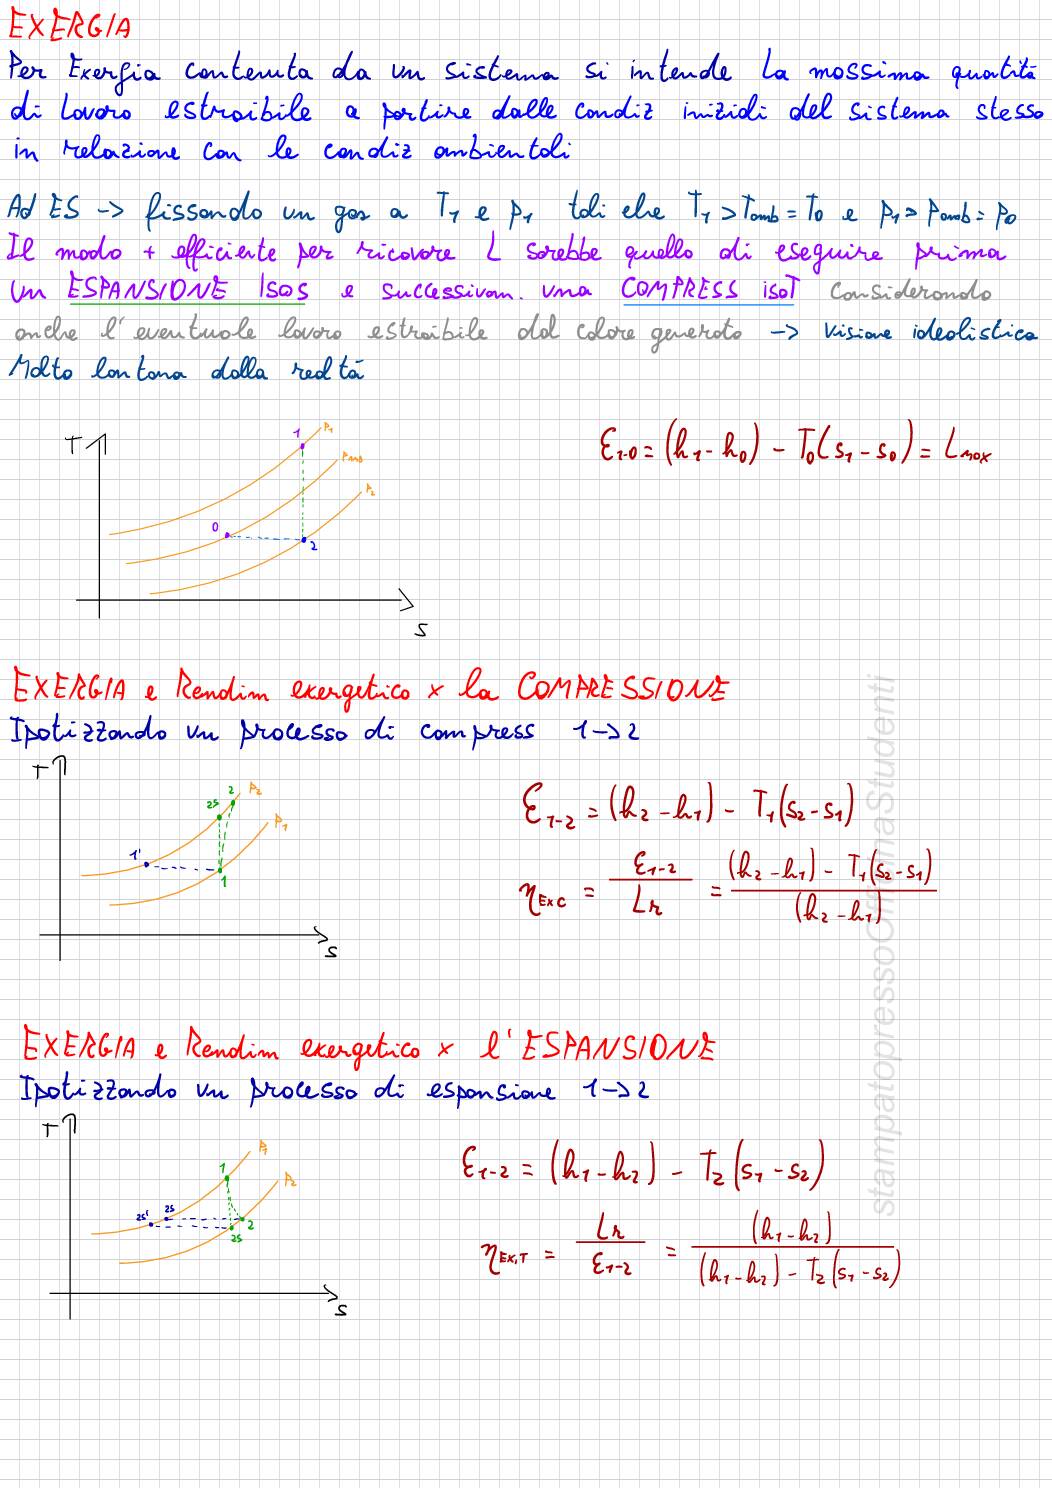 EXERGIA
Per Exergia contenuta da un sistema si intende la massima quantità
di lavoro estraibile a partire dalle condiz iniziali del sistema stesso
in relazione con le condiz ambientali
Ad ES -> fissando un gas a T₁ e p₁ tali che T₁ > Tamb = T₀ e p₁ > Pamb = p₀
Il modo + efficiente per ricavare L sarebbe quello di eseguire prima
un ESPANSIONE IsoS e successivam. una COMPRESS isoT considerando
anche l'eventuale lavoro estraibile dal calore generato -> visione idealistica
Molto lontana dalla realtà
T
1
P₁
P₂
0
2
S
Ɛ₁₋₀ = (h₁ - h₀) - T₀(s₁ - s₀) = Lmax
EXERGIA e Rendim exergetico x la COMPRESSIONE
Ipotizzando un processo di compress 1->2
T
2S
2
P₂
P₁
1'
1
S
Ɛ₁₋₂ = (h₂ - h₁) - T₁(s₂ - s₁)
η Ex C = Ɛ₁₋₂ / Lr = (h₂ - h₁) - T₁(s₂ - s₁) / (h₂ - h₁)
EXERGIA e Rendim exergetico x l'ESPANSIONE
Ipotizzando un processo di espansione 1->2
T
1
P₁
P₂
2S'
2S
2
2S
S
Ɛ₁₋₂ = (h₁ - h₂) - T₂(s₁ - s₂)
η Ex,T = Lr / Ɛ₁₋₂ = (h₁ - h₂) / (h₁ - h₂) - T₂(s₁ - s₂)
stampatopressoOfficinaStudenti